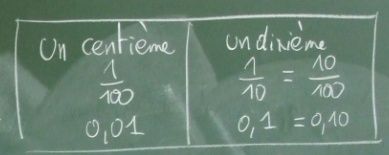 Un centième
1/100
0,01
un dixième
1/10 = 10/100
0,1 = 0,10